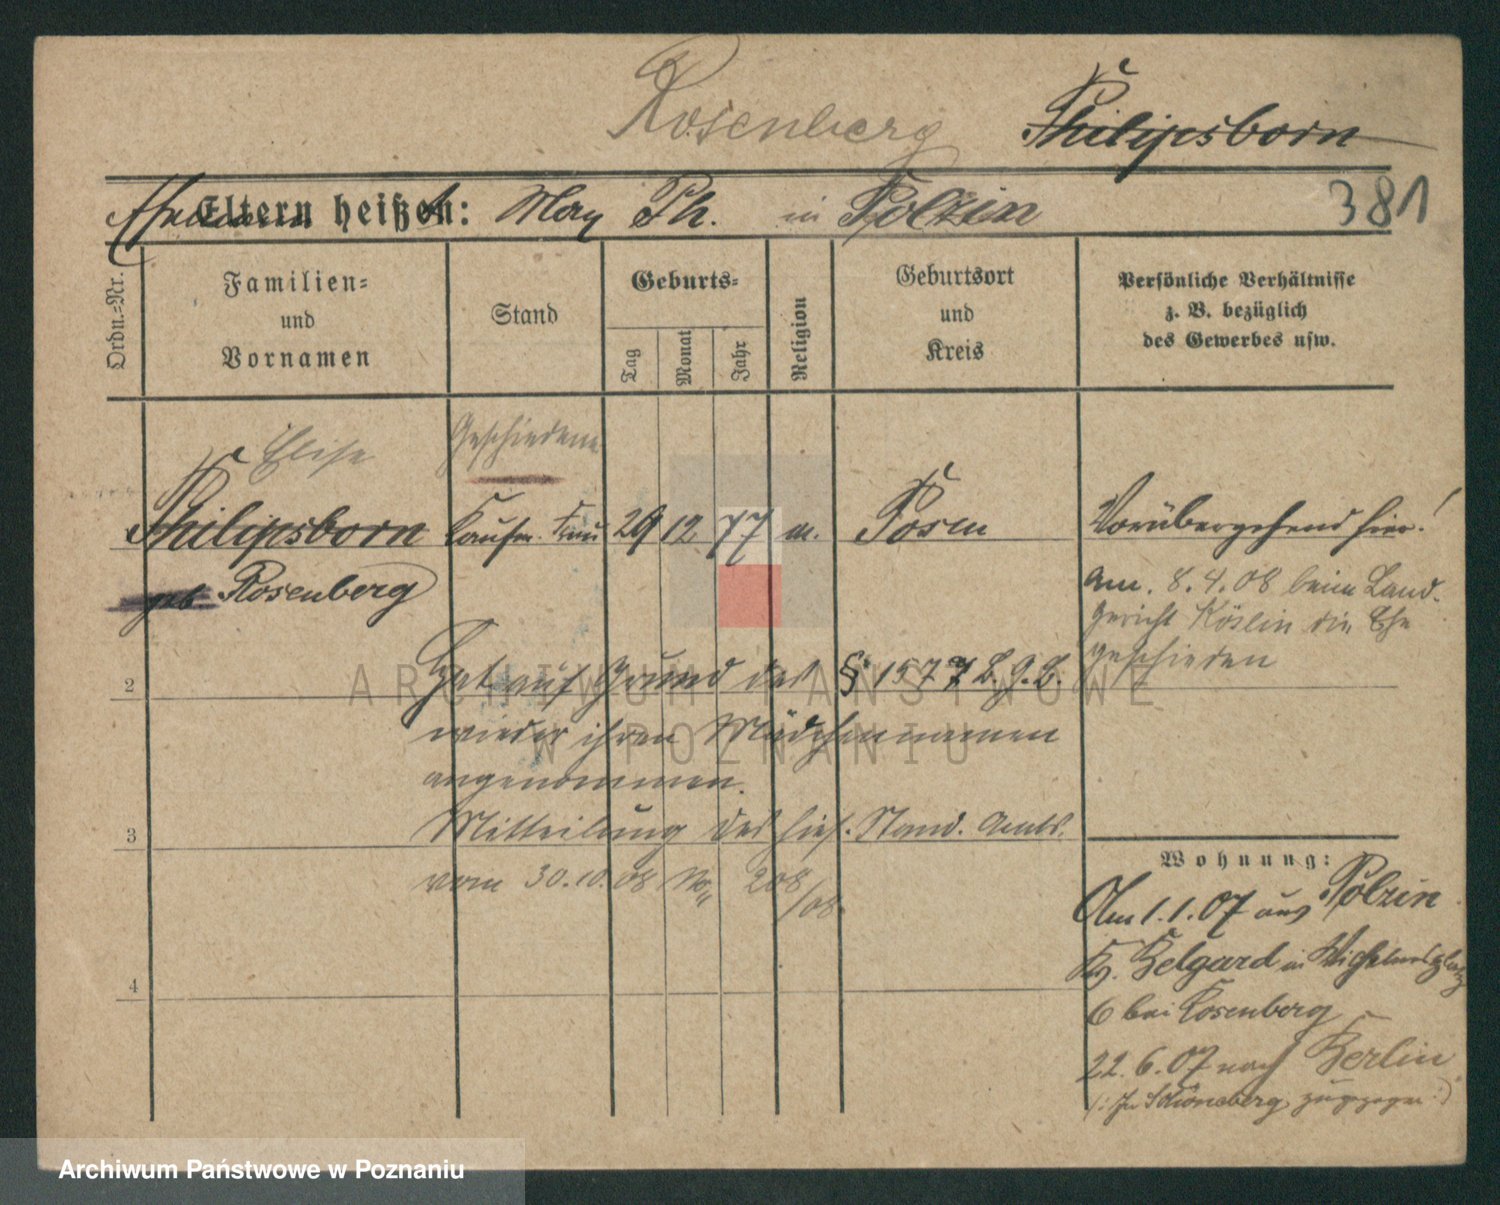 Rosenberg Philipsborn
Ehemann Eltern heißen: Max Ph. in Polzin 381
Ordn.=Nr.
Familien=
und
Vornamen
Stand
Geburts=
Tag
Monat
Jahr
Religion
Geburtsort
und
Kreis
Persönliche Verhältnisse
z. B. bezüglich
des Gewerbes usw.
Elise Geschiedene
Philipsborn Kaufm. Frau 29 12 77 m. Posen Vorübergehend hier!
geb Rosenberg
am. 8.4.08 beim Land-
gericht Köslin die Ehe
geschieden
2 Hat auf Grund des § 1577 B.G.B.
wieder ihren Mädchennamen
angenommen.
3 Mitteilung des hies. Stand. Amts.
vom 30.10.08 No 208/08.
4
Wohnung:
Am 1.1.07 aus Polzin
Kr. Belgard in Wilhelmsplatz
6 bei Rosenberg
22.6.07 nach Berlin
(: In Schöneberg zugezogen :)
ARCHIWUM PAŃSTWOWE
W POZNANIU
Archiwum Państwowe w Poznaniu